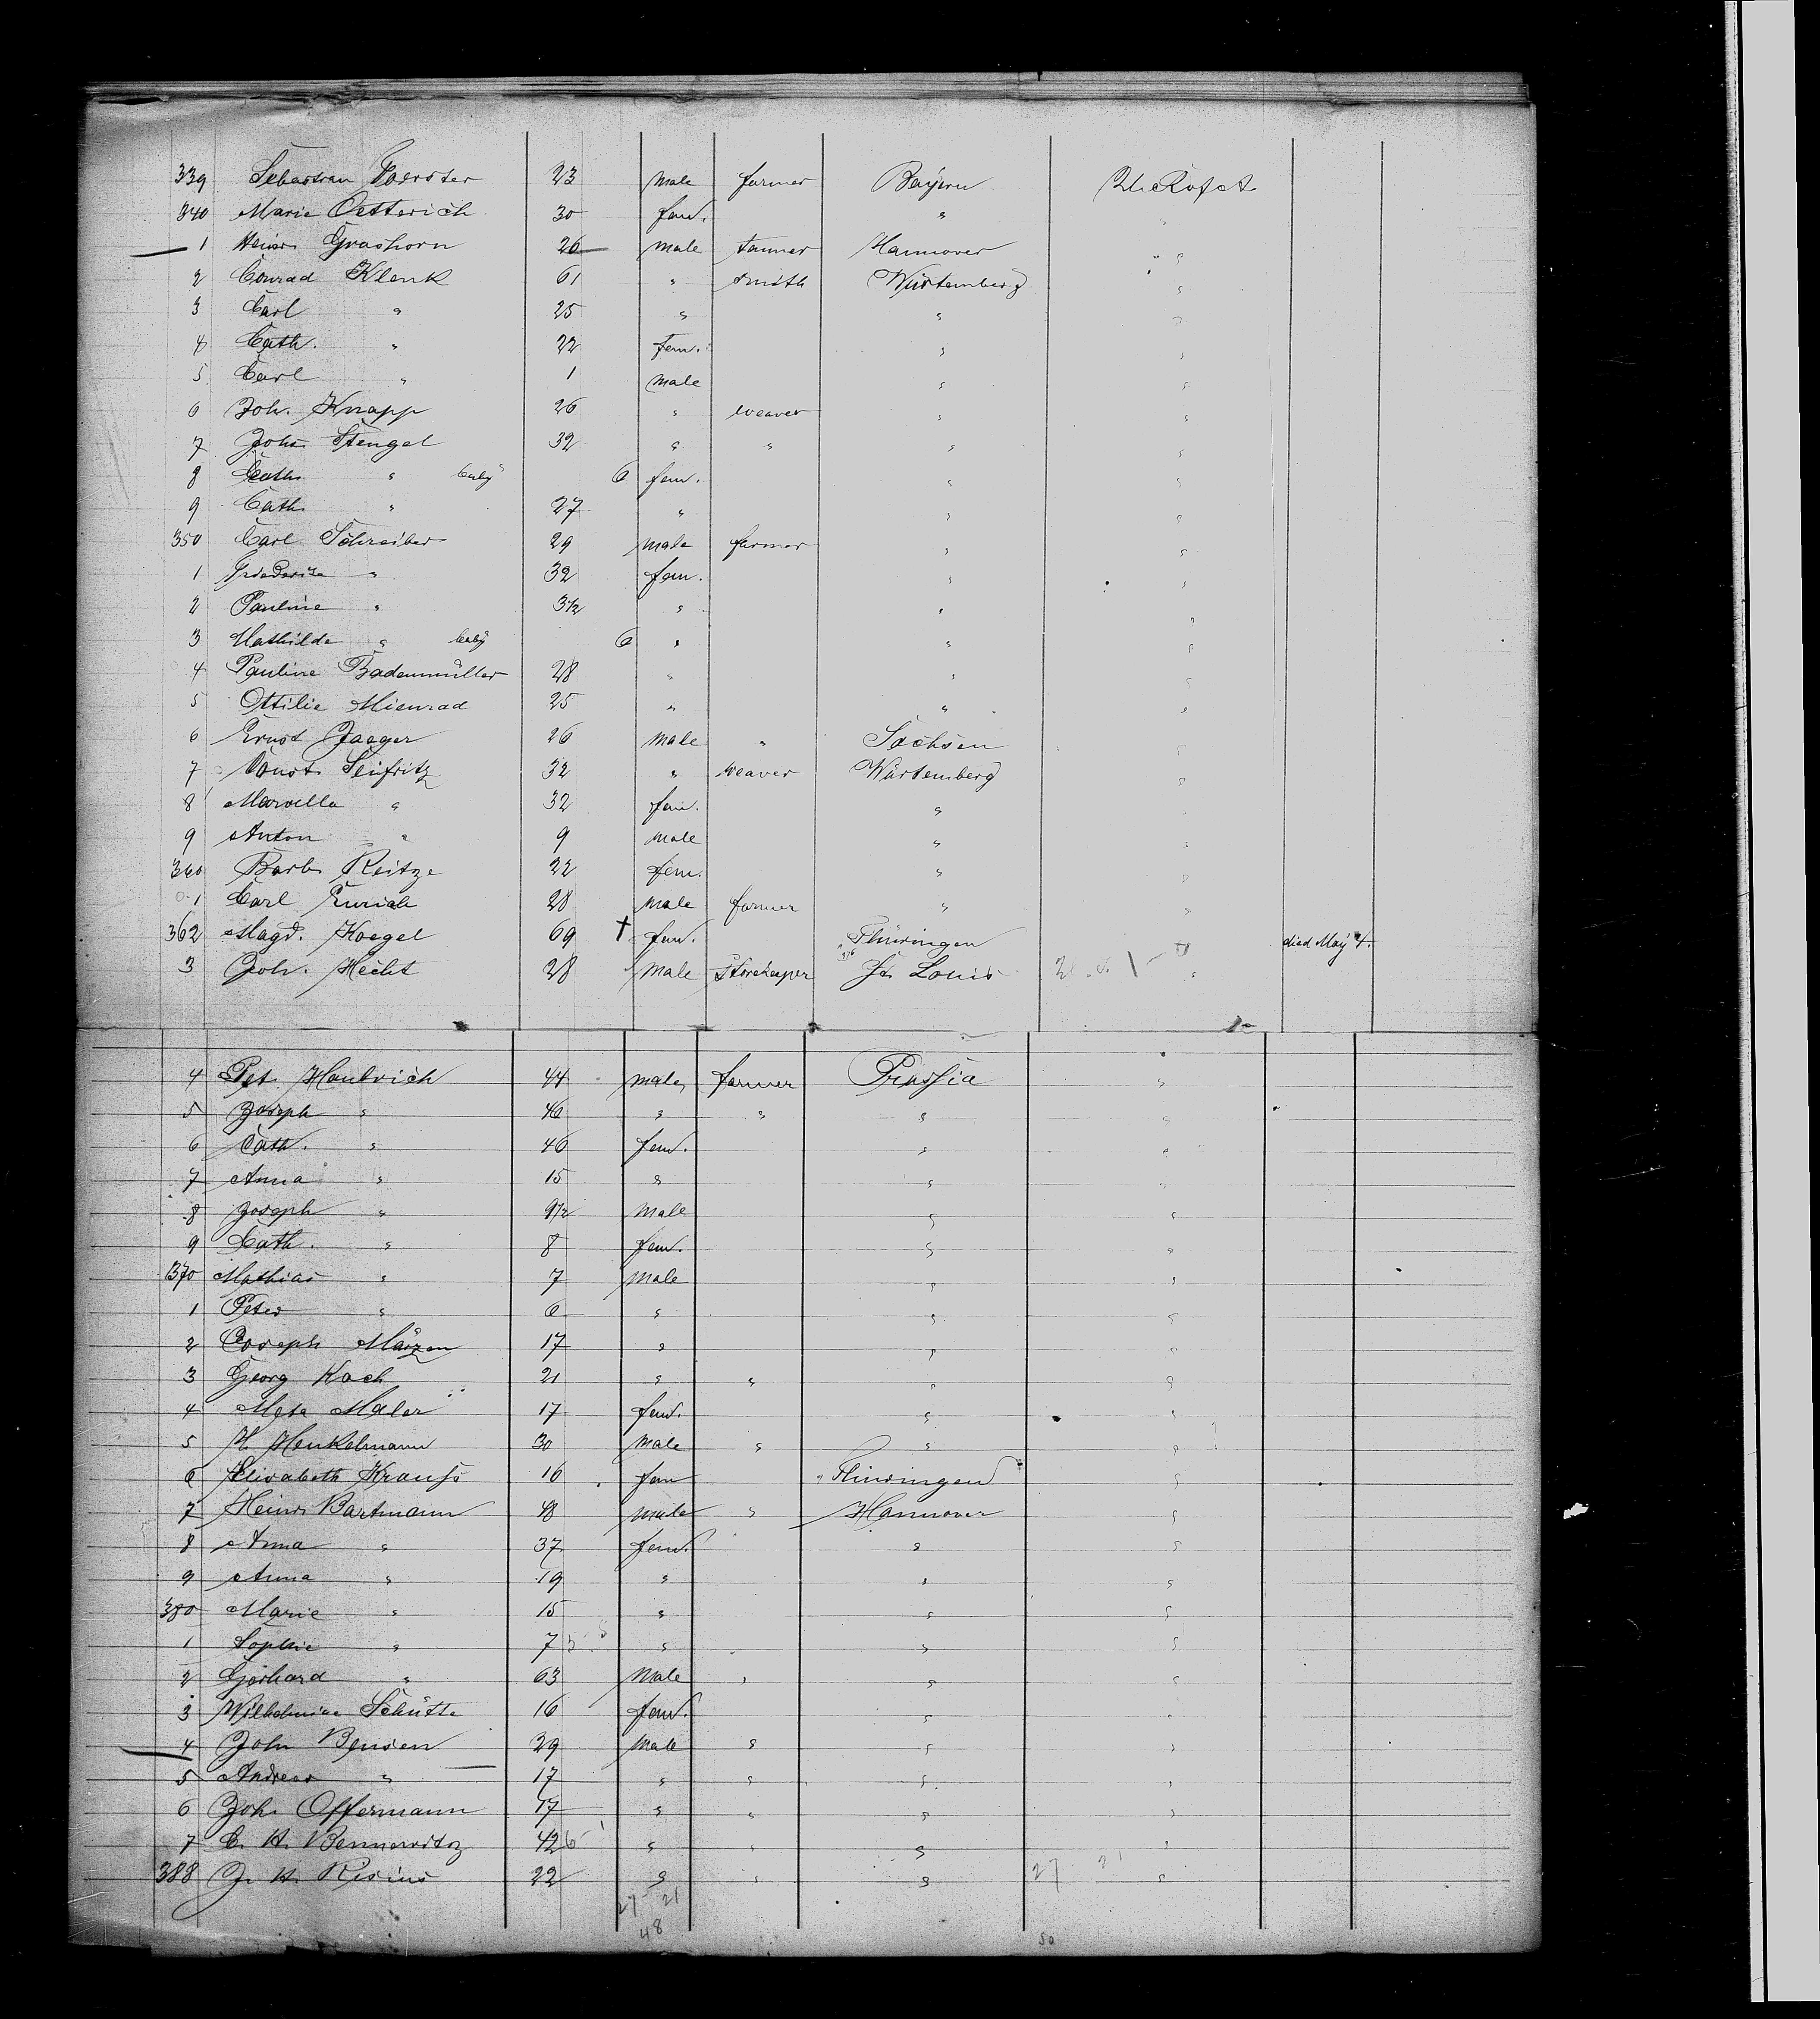 339 Sebastian Foerster 23 male farmer Bayern U. S. of A.
340 Marie Oetterich 30 fem. "
1 Heinr. Grashorn 26 male farmer Hannover "
2 Conrad Klenk 61 " smith Würtemberg "
3 Carl " 25 " " "
4 Cath. " 22 fem. " "
5 Carl " 1 male " "
6 Joh. Knapp 26 " weaver " "
7 Johs Stengel 32 " " " "
8 Cath. " baby 6 fem. " "
9 Cath. " 27 " " "
350 Carl Schreiber 29 male farmer " "
1 Friederike " 32 fem. " "
2 Pauline " 3 1/2 " " "
3 Mathilde " baby 6 " " "
4 Pauline Badenmüller 28 " " "
5 Ottilie Mienrad 25 " " "
6 Ernst Jaeger 26 male " Sachsen "
7 Seifritz 32 " weaver Würtemberg "
8 " 32 fem. " "
9 Anton " 9 male " "
360 Barb. Reitze 22 fem. " "
1 Carl 28 male farmer " "
362 Magd. Koegel 69 † fem. Thüringen " died May 4.
3 Joh. Hecht 28 male Storekeeper St. Louis "
4 Pet. 44 male farmer Prussia "
5 Joseph " 46 " " " "
6 Cath. " 46 fem. " "
7 Anna " 15 " " "
8 Joseph " 9 1/2 male " "
9 Cath. " 8 fem. " "
370 Mathias " 7 male " "
1 Peter " 6 " " "
2 Joseph Märzen 17 " " "
3 Georg Koch 21 " " " "
4 Meta Maler 17 fem. " "
5 H. Henkelmann 30 male " " "
6 Elisabeth Krauss 16 fem Thüringen "
7 Heinr. Bartmann 48 male " Hannover "
8 Anna " 37 fem. " "
9 Anna " 19 " " "
380 Marie " 15 " " "
1 Sophie " 7 " " "
2 Gerhard " 63 male " " "
3 Wilhelmine Schütte 16 fem. " "
4 John Bensen 29 male " " "
5 Andreas " 17 " " " "
6 Joh. Offermann 17 " " " "
7 C. H. Bennewitz 42 " " " "
388 J. H. Risius 22 " " " "
27 21
48